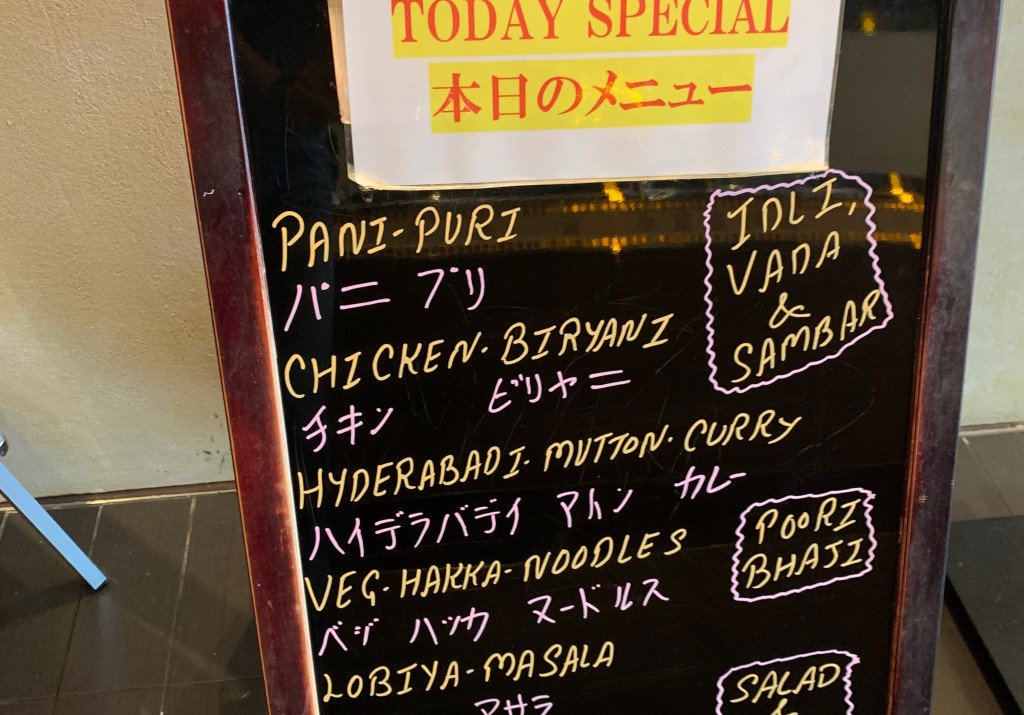 TODAY SPECIAL
本日のメニュー
PANI-PURI
パニ プリ
CHICKEN-BIRYANI
チキン ビリヤニ
HYDERABADI-MUTTON-CURRY
ハイデラバディ マトン カレー
VEG-HAKKA-NOODLES
ベジ ハッカ ヌードルス
LOBIYA-MASALA
マサラ
IDLI,
VADA
&
SAMBAR
POORI
BHAJI
SALAD
&